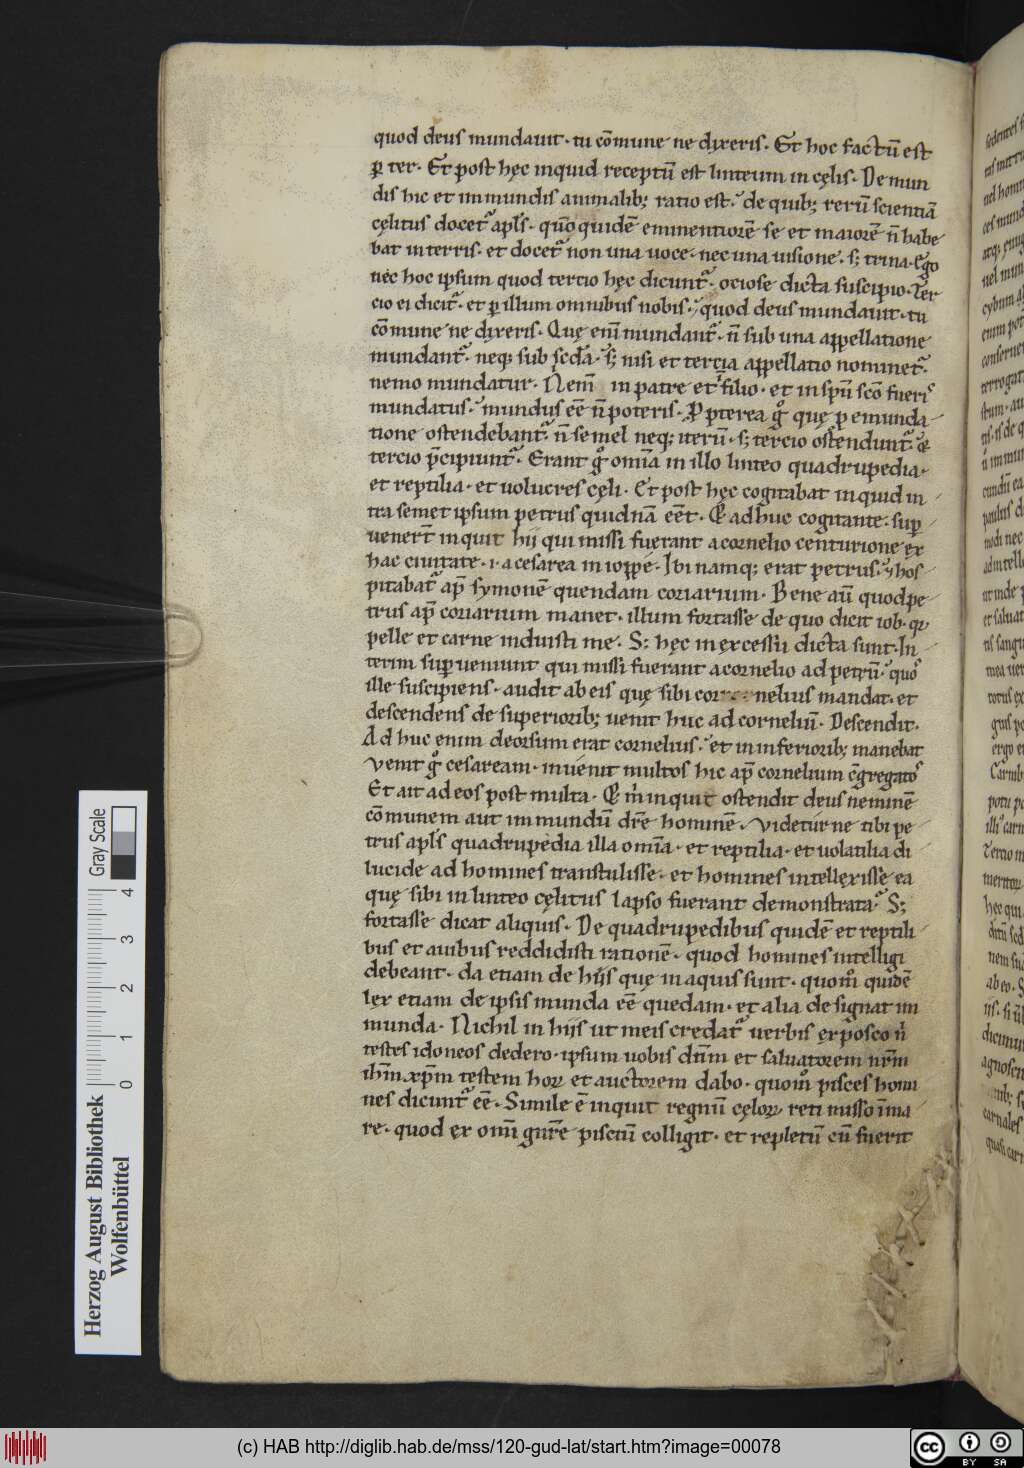 quod deus mundauit · tu cōmune ne dixeris · Et hoc factū est
ꝑ ter · Et post hęc inquid receptū est linteum in cęlis · De mun
dis hic et immundis animalib; ratio est · de quib; rerū scientiā
cęlitus docet᷑ apl̄s · quō quidē eminentiorē se et maiorē n̄ habe
bat in terris · et docet᷑ non una uoce · nec una uisione · s; trina · Ego
nec hoc ipsum quod tercio hęc dicunt᷑ · ociose dicta suscipio · Ter
cio ei dicit᷑ · et ꝑ illum omnibus nobis · quod deus mundauit · tu
cōmune ne dixeris · Quę eni̅ mundant᷑ · n̄ sub una appellatione
mundant᷑ · neq; sub scd̄a · s; nisi et tercia appellatio nominet᷑ ·
nemo mundatur · Nem̄ in patre et filio · et in spū scō fueris
mundatus · mundus eē n̄ poteris · Ꝓpterea gͦ quę ꝑ emunda
tione ostendebant᷑ · n̄ semel neq; iterū · s; tercio ostendunt᷑ · &
tercio p̄cipiunt᷑ · Erant gͦ om̄ia in illo linteo quadrupedia ·
et reptilia · et uolucres cęli · Et post hęc cogitabat inquid in
tra semet ipsum petrus quidnā eēt · & adhuc cogitante · suꝑ
uenert̄ inquit hij qui missi fuerant a cornelio centurione ex
hac ciuitate · i · a cesarea in ioppe · Ibi namq; erat petrus · & hos
pitabat᷑ ap̄ symonē quendam coriarium · Bene aū quod pe
trus ap̄ coriarium manet · illum fortasse de quo dicit iob · qꝛ
pelle et carne induisti me · S; hęc in excessu dicta sunt · In
terim suꝑueniunt qui missi fuerant a cornelio ad petrū · quos
ille suscipiens · audit ab eis quę sibi cor nelius mandat · et
descendens de superiorib; uenit huc ad corneliū · Descendit ·
Ad huc enim deorsum erat cornelius · et in inferiorib; manebat
Venit gͦ cesaream · inuenit multos hic ap̄ cornelium c̄gregatos
Et ait ad eos post multa · & m̍ inquit ostendit deus neminē
cōmunem aut immundū dr̄e hominē · Videturne tibi pe
trus apl̄s quadrupedia illa om̄ia · et reptilia · et uolatilia di
lucide ad homines transtulisse · et homines intellexisse ea
quę sibi in linteo cęlitus lapso fuerant demonstrata · S;
fortasse dicat aliquis · De quadrupedibus quidē et reptili
bus et auibus reddidisti rationē · quod homines intelligi
debeant · da etiam de hijs quę in aquis sunt · quom̊ quidē
lex etiam de ipsis munda eē quedam · et alia designat im
munda · Nichil in hijs ut meis credat᷑ uerbis exposco n̍
testes idoneos dedero · ipsum uobis dn̄m et saluatorem nr̄m
ih̄m xp̄m testem hoꝝ et auctorem dabo · quom̊ pisces homi
nes dicunt᷑ eē · Simile ē inquit regnū cęloꝝ reti misso ī ma
re · quod ex om̄i gn̄re pisciū colligit · et repletū cū fuerit
Herzog August Bibliothek
Wolfenbüttel
Gray Scale
0 1 2 3 4
(c) HAB http://diglib.hab.de/mss/120-gud-lat/start.htm?image=00078
cc BY SA